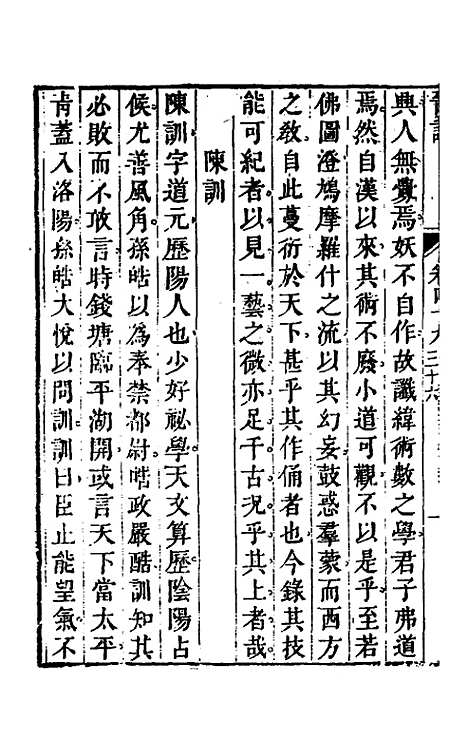 興人無釁焉妖不自作故讖緯術數之學君子弗道
焉然自漢以來其術不廢小道可觀不以是乎至若
佛圖澄鳩摩羅什之流以其幻妄鼓惑羣蒙而西方
之敎自此蔓衍於天下甚乎其作俑者也今錄其技
能可紀者以見一藝之微亦足千古况乎其上者哉
陳訓
陳訓字道元歷陽人也少好祕學天文算歷陰陽占
候尤善風角孫皓以為奉禁都尉皓政嚴酷訓知其
必敗而不敢言時錢塘臨平湖開或言天下當太平
靑蓋入洛陽孫皓大悅以問訓訓曰臣止能望氣不